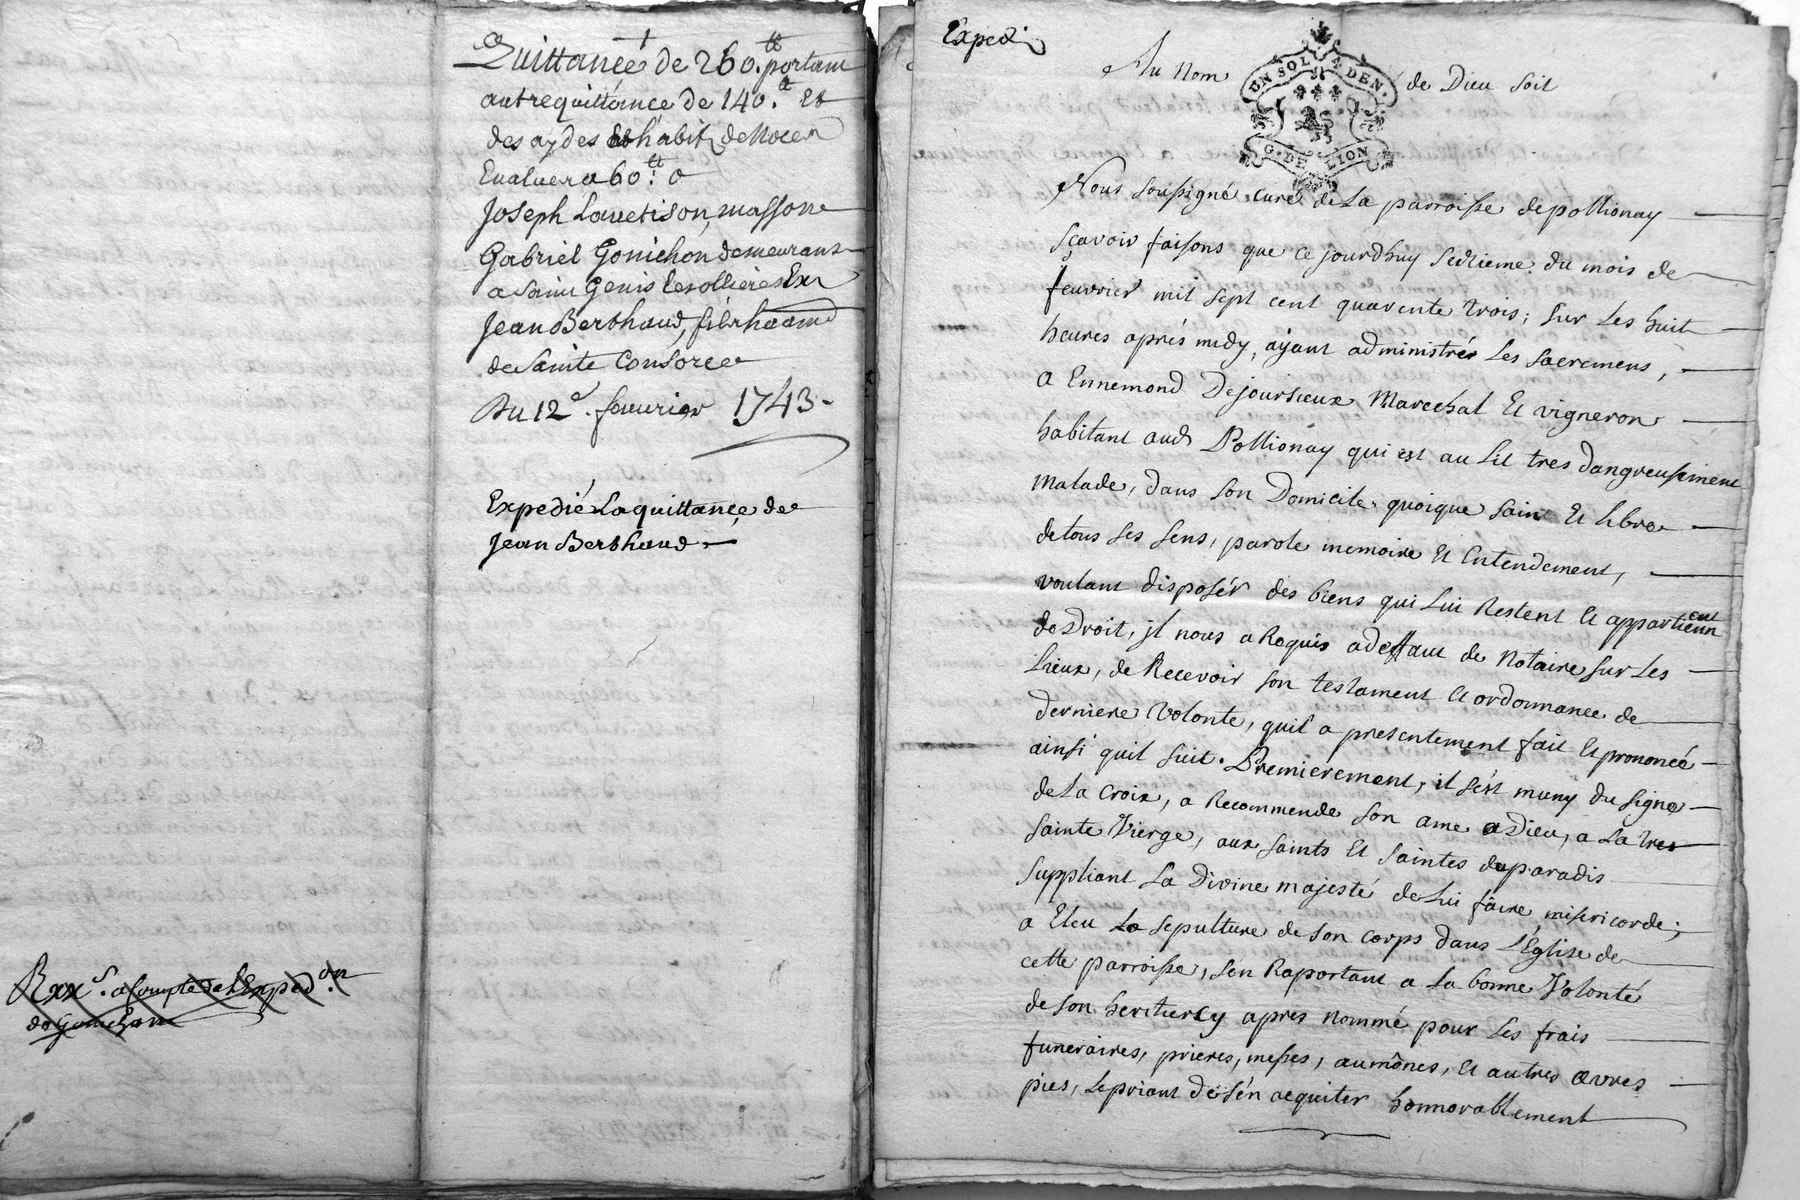 Quittance de 260.tt portant
autre quittance de 140.tt Et
des aydes Et habits de Nocen
Evaluer a 60.tt
Joseph Lavetison, masson
Gabriel Gonichon demeurans
a Saint Genis les ollieres Et
Jean Berthaud, fils
de Sainte Consorce
Du 12e. fevrier 1743-
Expedié La quittance de
Jean Berthaud
R xxs. a Compte de l'Exped.on
de Gonichon
Exped.
Au Nom de Dieu soit
UN SOL 4 DEN.
G. DE LION
Nous soussigné curé de La parroisse de pollionay
sçavoir faisons que ce jourdhuy seizieme du mois de
feuvrier mil sept cent quarente trois; sur Les huit
heures aprés midy, ayant administrér Les sacremens,
a Ennemond Dejoursieux Marechal Et vigneron
habitant aud Pollionay qui est au Lit tres dangreusement
malade, dans son Domicile, quoique sain Et libre
de tous ses sens, parole memoire Et Entendement,
voulant disposér des biens qui Lui Restent Et appartienn ent
de Droit, jl nous a Requis adeffaut de Notaire sur Les
Lieux, de Recevoir son testament Et ordonnance de
derniere Volonte, quil a presentement fait Et prononcé
ainsi quil suit. Premierement, il s'est muny du signe
de La Croix, a Recommende son ame a Dieu, a La tres
sainte Vierge, aux saints Et saintes du paradis
suppliant La Divine majesté de Lui faire misericorde;
a Eleu La sepulture de son corps dans L'Eglise de
cette parroisse, s'en Raportant a La bonne Volonté
de son heritier cy apres nommé pour Les frais
funeraires, prieres, messes, aumônes, Et autres œvres
pies, Le priant de s'en acquiter honnorablement